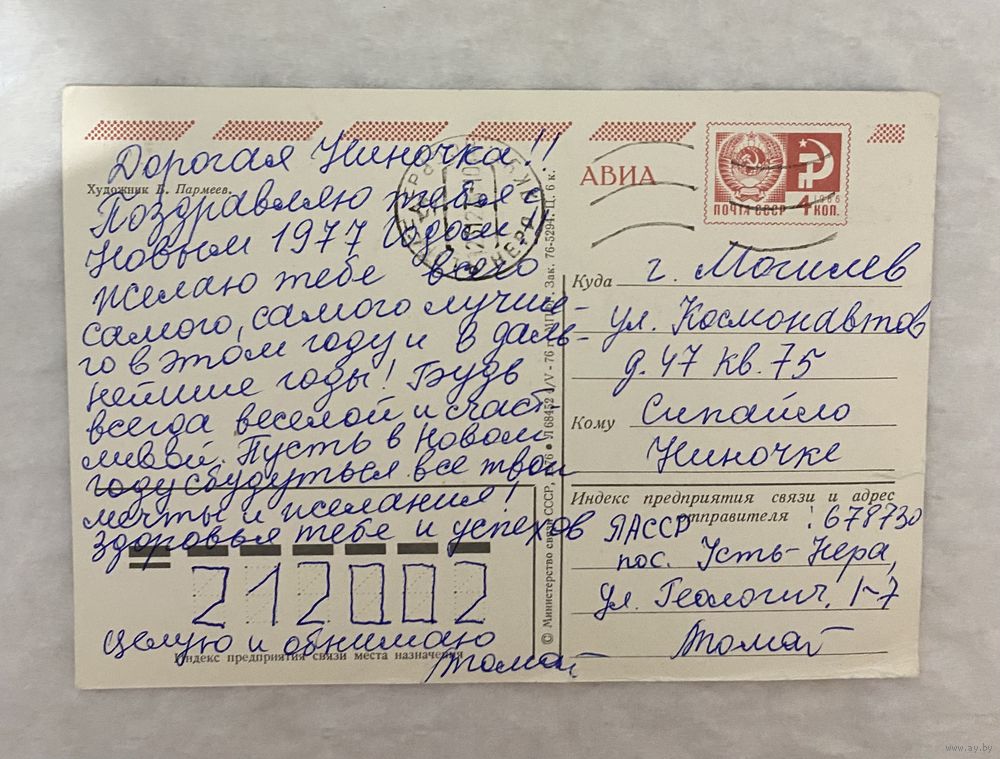 Дорогая Ниночка!!
Художник В. Пармеев.
Поздравляю тебя с
Новым 1977 Годом,
желаю тебе всего
самого, самого лучше-
го в этом году и в даль-
нейшие годы! Будь
всегда веселой и счаст-
ливой. Пусть в Новом
году сбудуться все твои
мечты и желания!
Здоровья тебе и успехов
212002
Целую и обнимаю
Индекс предприятия связи места назначения
© Министерство связи СССР, 1976 • Л 68452 6/V - 76 г. Зак. 76-5294. Ц. 6 к.
АВИА
ПОЧТА СССР 4 КОП.
1966
Куда г. Могилев
ул. Космонавтов
д. 47 кв. 75
Кому Сипайло
Ниночке
Индекс предприятия связи и адрес
отправителя : 678730
ЯАССР
пос. Усть-Нера,
ул. Геологич. 1-7
www.ay.by